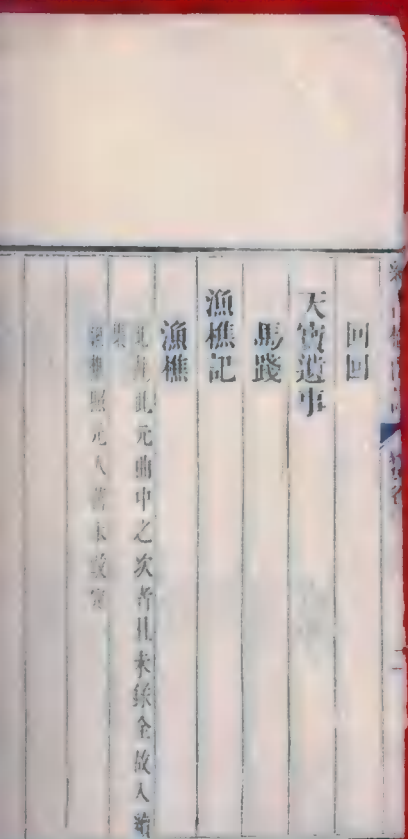 回回
天寶遺事
馬踐
漁樵記
漁樵
此元曲中之次者且未錄全故入
集
漁樵照元人舊本改定